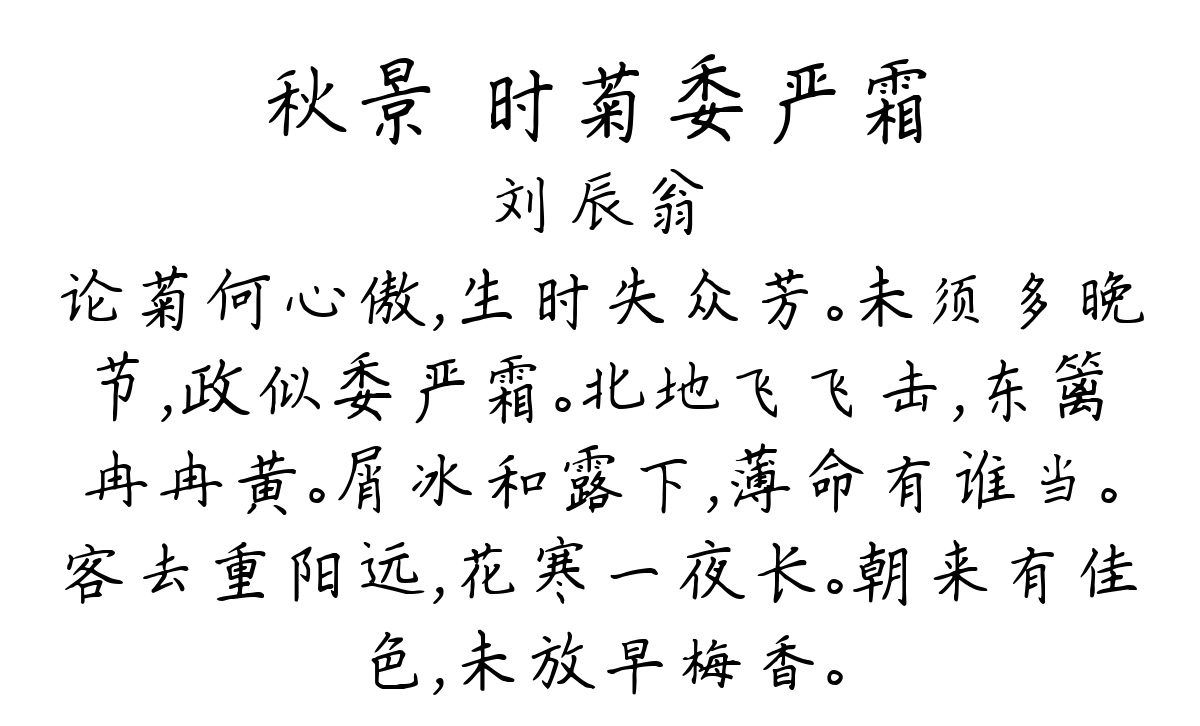 秋景 时菊委严霜
刘辰翁
论菊何心傲,生时失众芳。未须多晚
节,政似委严霜。北地飞飞击,东篱
冉冉黄。屑冰和露下,薄命有谁当。
客去重阳远,花寒一夜长。朝来有佳
色,未放早梅香。